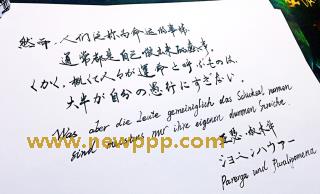 然而，人们泛称为命运的事情，
通常都是自己做出来的蠢事。
しかし、概して人々が運命と呼ぶものは、
大半が自分の愚行にすぎない。
Was aber die Leute gemeiniglich das Schicksal nennen
sind meistens nur ihre eigenen dummen Streiche.
叔本华
ショーペンハウアー
Parerga und Paralipomena
www.newppp.com